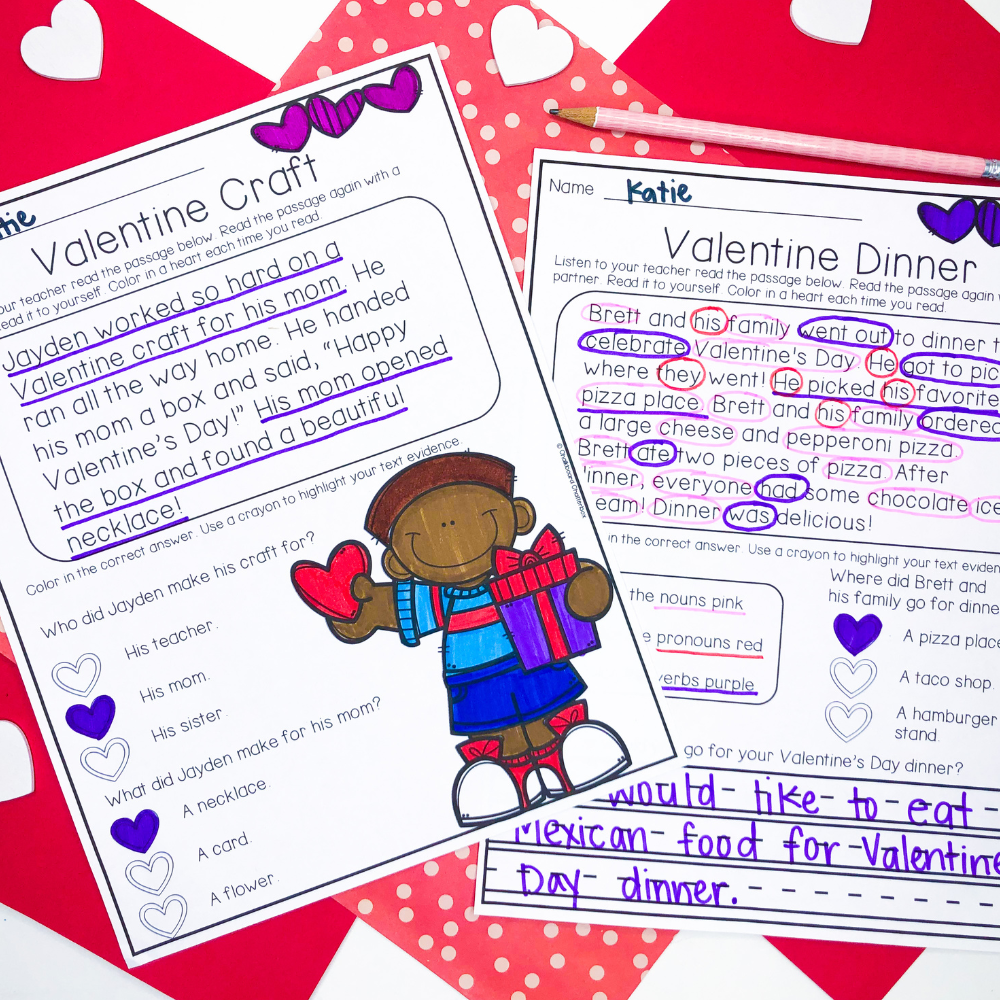 Valentine Craft
your teacher read the passage below. Read the passage again with a
Read it to yourself. Color in a heart each time you read.
Jayden worked so hard on a
Valentine craft for his mom. He
ran all the way home. He handed
his mom a box and said, "Happy
Valentine's Day!" His mom opened
the box and found a beautiful
necklace!
Color in the correct answer. Use a crayon to highlight your text evidence.
Who did Jayden make his craft for?
His teacher.
His mom.
His sister.
What did Jayden make for his mom?
A necklace.
A card.
A flower.
© Chalkboard Chatterbox
Name Katie
Valentine Dinner
Listen to your teacher read the passage below. Read the passage again
partner. Read it to yourself. Color in a heart each time you read.
Brett and his family went out to dinner
celebrate Valentine's Day. He got to
where they went! He picked his favorite
pizza place. Brett and his family ordered
a large cheese and pepperoni pizza.
Brett ate two pieces of pizza. After
everyone had some chocolate ice
Dinner was delicious!
in the correct answer. Use a crayon to highlight your text
the nouns pink
pronouns red
verbs purple
Where did Brett and
his family go for
A pizza place
A taco shop.
A hamburger
stand.
go for your Valentine's Day dinner?
would like to eat
Mexican food for Valentine
Day dinner.